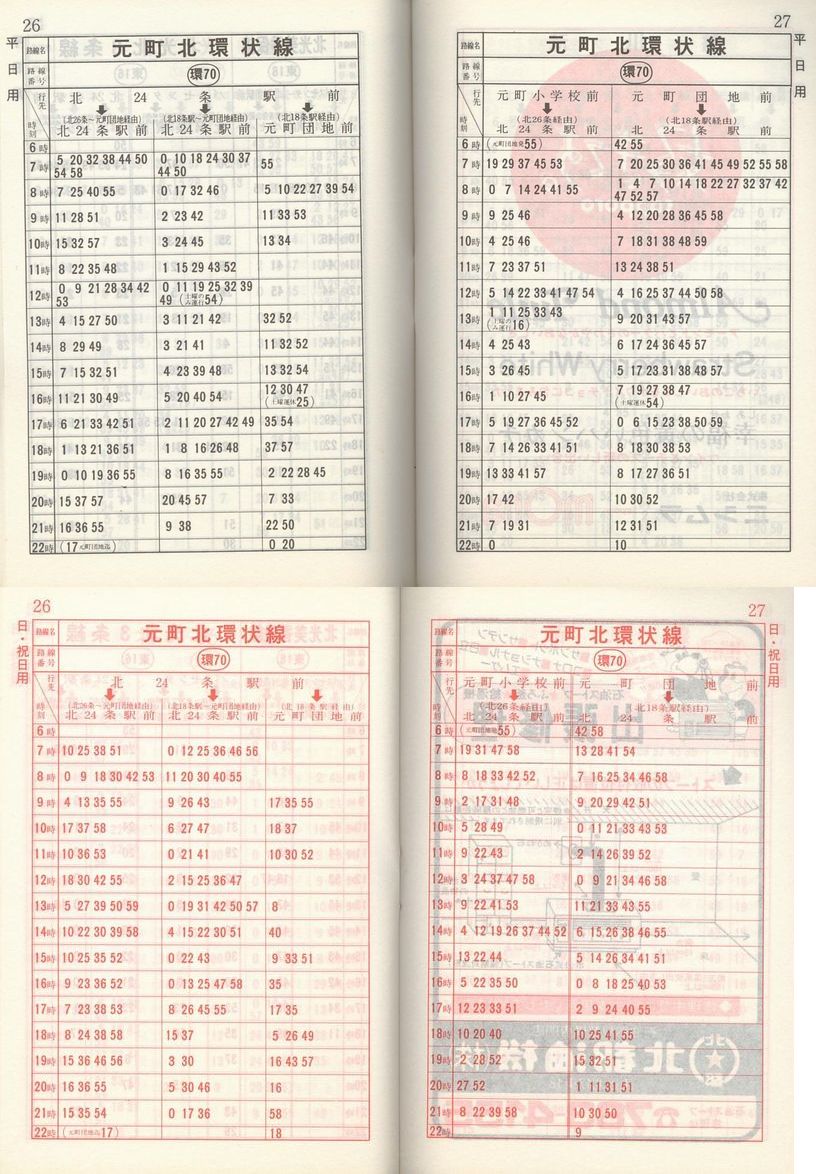 26
平日用
路線名 元町北環状線
路線番号 環70
行先 北 24 条 駅 前
時刻 (北26条〜元町団地経由) 北24条駅前 (北18条駅〜元町団地経由) 北24条駅前 (北18条駅経由) 元町団地前
6時
7時 5 20 32 38 44 50 54 58 0 10 18 24 30 37 44 50 55
8時 7 25 40 55 0 17 32 46 5 10 22 27 39 54
9時 11 28 51 2 23 42 11 33 53
10時 15 32 57 3 24 45 13 34
11時 8 22 35 48 1 15 29 43 52
12時 0 9 21 28 34 42 53 0 11 19 25 32 39 49 (土曜のみ運行54)
13時 4 15 27 50 3 11 21 42 32 52
14時 8 29 49 3 21 41 11 32 52
15時 7 15 32 51 4 23 39 48 13 32 54
16時 11 21 30 49 5 20 40 54 12 30 47 (土曜運休25)
17時 6 21 33 42 51 2 11 20 27 42 49 35 54
18時 1 13 21 36 51 1 8 16 26 48 37 57
19時 0 10 19 36 55 8 16 35 55 2 22 28 45
20時 15 37 57 20 45 57 7 33
21時 16 36 55 9 38 22 50
22時 (17元町団地迄) 0 20
27
平日用
路線名 元町北環状線
路線番号 環70
行先 元町小学校前 元町団地前
時刻 (北26条経由) 北24条駅前 (北18条駅経由) 北24条駅前
6時 (元町団地発55) 42 55
7時 19 29 37 45 53 7 20 25 30 36 41 45 49 52 55 58
8時 0 7 14 24 41 55 1 4 7 10 14 18 22 27 32 37 42 47 52 57
9時 9 25 46 4 12 20 28 36 45 58
10時 4 25 46 7 18 31 38 48 59
11時 7 23 37 51 13 24 38 51
12時 5 14 22 33 41 47 54 4 16 25 37 44 50 58
13時 1 11 25 33 43 (土曜のみ運行16) 9 20 31 43 57
14時 4 25 43 6 17 24 36 45 57
15時 3 26 45 5 17 23 31 38 48 57
16時 1 10 27 45 7 19 27 38 47 (土曜運休54)
17時 5 19 27 36 45 52 0 6 15 23 38 50 59
18時 7 14 26 33 41 51 8 18 30 38 53
19時 13 33 41 57 8 17 27 36 51
20時 17 42 10 30 52
21時 7 19 31 12 31 51
22時 0 10
26
日・祝日用
路線名 元町北環状線
路線番号 環70
行先 北 24 条 駅 前
時刻 (北26条〜元町団地経由) 北24条駅前 (北18条駅〜元町団地経由) 北24条駅前 (北18条駅経由) 元町団地前
6時
7時 10 25 38 51 0 12 25 36 46 56
8時 0 9 18 30 42 53 11 20 30 40 55
9時 4 13 35 55 9 26 43 17 35 55
10時 17 37 58 6 27 47 18 37
11時 10 36 53 0 21 41 10 30 52
12時 18 30 42 55 2 15 25 36 47
13時 5 27 39 50 59 0 19 31 42 50 57 8
14時 10 22 30 39 58 4 15 22 30 51 40
15時 10 25 35 52 0 22 43 9 33 51
16時 9 23 36 52 0 13 25 47 58 35
17時 7 23 38 53 8 26 45 55 17 35
18時 8 24 38 58 15 37 5 26 49
19時 15 36 46 56 3 30 16 43 57
20時 16 36 55 5 30 46 16
21時 15 35 54 0 17 36 58
22時 (元町団地迄17) 18
27
日・祝日用
路線名 元町北環状線
路線番号 環70
行先 元町小学校前 元町団地前
時刻 (北26条経由) 北24条駅前 (北18条駅経由) 北24条駅前
6時 (元町団地発55) 42 58
7時 19 31 47 58 13 28 41 54
8時 8 18 33 42 52 7 16 25 34 46 58
9時 2 17 31 48 9 20 29 42 51
10時 5 28 49 0 11 21 33 43 53
11時 9 22 43 2 14 26 39 52
12時 3 24 37 47 58 0 9 21 34 46 58
13時 9 22 41 53 11 21 33 43 55
14時 4 12 19 26 37 44 52 6 15 26 38 46 55
15時 13 22 44 5 14 26 34 41 51
16時 5 22 35 50 0 8 18 25 40 53
17時 12 23 33 51 2 9 24 40 55
18時 10 20 40 10 25 41 55
19時 2 28 52 15 32 51
20時 27 52 1 11 31 51
21時 8 22 39 58 10 30 50
22時 9